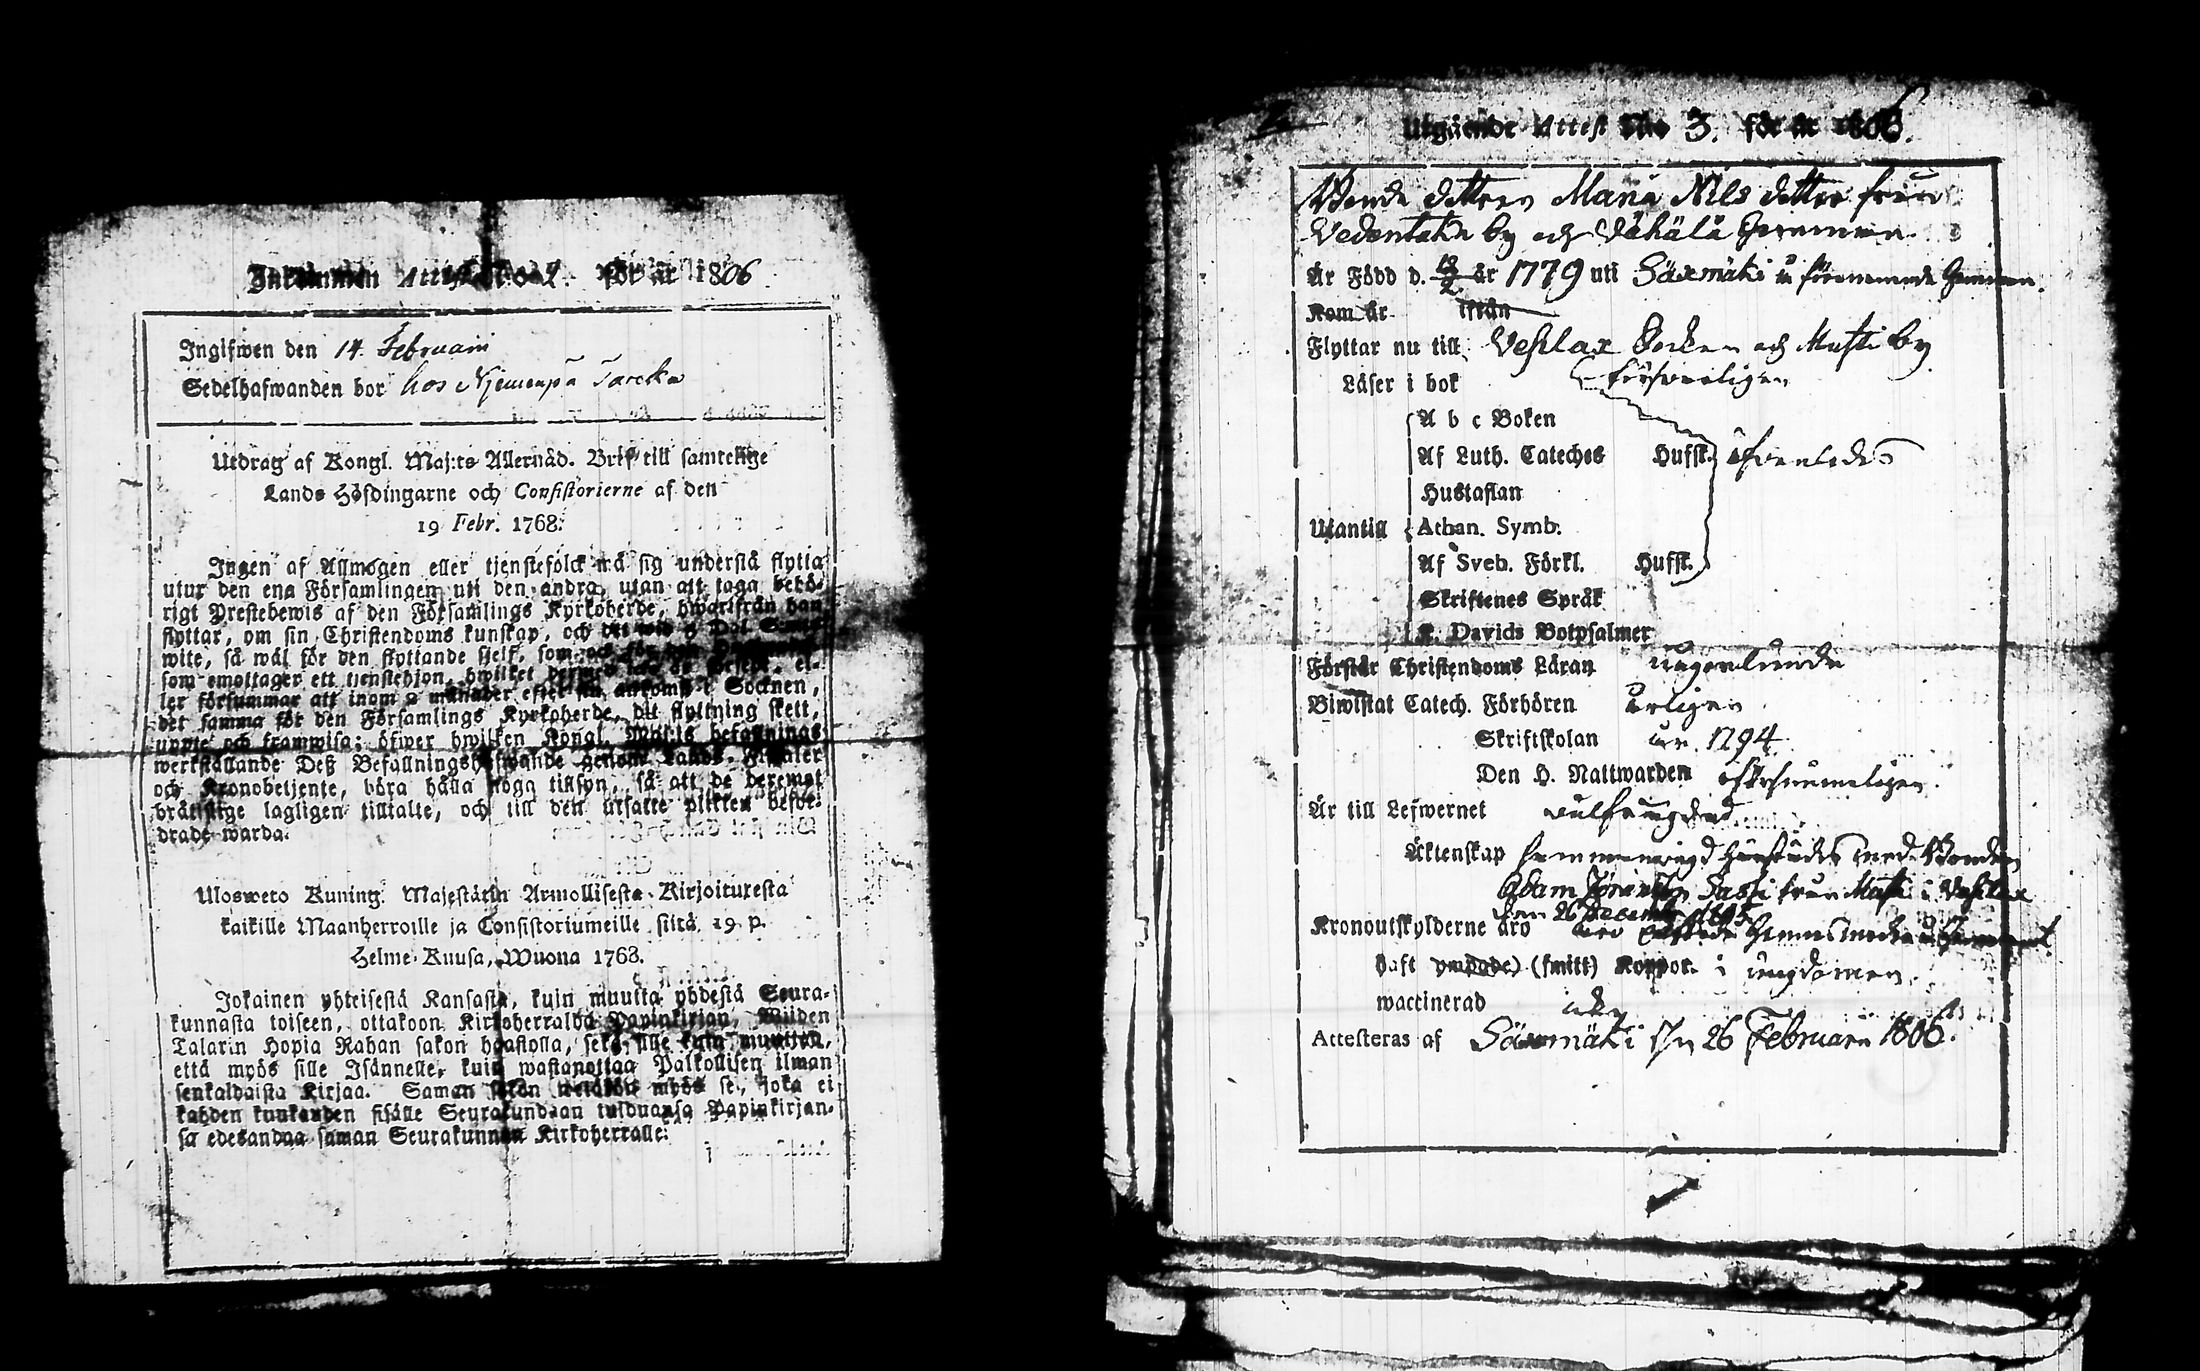 Inkommen Attest N:o 4. för år 1806
Ingifwen den 14. Februarii
Sedelhafwanden bor hos
Utdrag af Kongl. Maj:ts Allernåd. Bref till samtelige
Lands Höfdingarne och Consistorierne af den
19 Febr. 1768.
Ingen af Allmogen eller tjenstefolck må sig understå flytta
utur den ena Församlingen uti den andra, utan att taga behö-
rigt Prestebewis af den Församlings Kyrkoherde, hwarifrån han
flyttar, om sin Christendoms kunskap, och det wid 5 Dol. Smt
wite, så wäl för den flyttande sjelf, som och för
som emottager ett tjenstehjon, hwilket dermed icke är försedt, el-
ler försummar att inom 2 månader efter sin ankomst i Socknen,
det samma för den Församlings Kyrkoherde, dit flyttning skett,
uppte och framwisa; öfwer hwilken Kongl. Maj:ts befallnings
werkställande Deß Befallningshafwande genom Lands-Fiskaler
och Kronobetjente, böra hålla noga tillsyn, så att de deremot
brätslige lagligen tilltalte, och till den utsatte plikten beför-
drade warda.
Ulosweto Kuning. Majestätin Armollisesta Kirjoituxesta
kaikille Maanherroille ja Consistoriumeille siitä 19 p.
Helme-Kuusa, Wuona 1768.
Jokainen yhteisestä Kansasta, kuin muutta yhdestä Seura-
kunnasta toiseen, ottakoon Kirkoherralda Papinkirjan, Wiiden
Talarin Hopia Rahan sakon haastolla, sekä sille kuin muuttaa,
että myös sille Isännelle, kuin wastanottaa Palkollisen ilman
senkaldaista Kirjaa. Saman sakon wetäköön myös se, joka ei
kahden kuukauden sisälle Seurakundaan tulduansa Papinkirjan-
sa edesandaa saman Seurakunnan Kirkoherralle.
Utgående Attest N:o 3. för år 1806.
Bonde dottren Maria Nils dotter från
Vedentaka by och Vähälä Hemman
Är Född d. 18/2 år 1779 uti Säxmäki å förenemnde Hemman.
Kom år ifrån
Flyttar nu till Vesilax Socken och Musti by
Läser i bok försvarligen
A b c Boken
Af Luth. Cateches Hufst. äfvenledes
Hustaflan
Utantill Athan. Symb.
Af Sveb. Förkl. Hufst.
Skriftenes Språk
K. Davids Botpsalmer
Förstår Christendoms Läran någorlunda
Biwistat Catech. Förhören årligen
Skriftskolan år 1794
Den H. Nattwarden oförsumeligen.
Är till Lefwernet välfrägdad
Äktenskap sammanvigd härstädes med Bonden
Adam från i Vesilax
den 26 December 1805
Kronoutskylderne äro
haft ympade) (smitt) Koppor. i ungdomen.
waccinerad
Attesteras af Säxmäki d. 26 Februarii 1806.